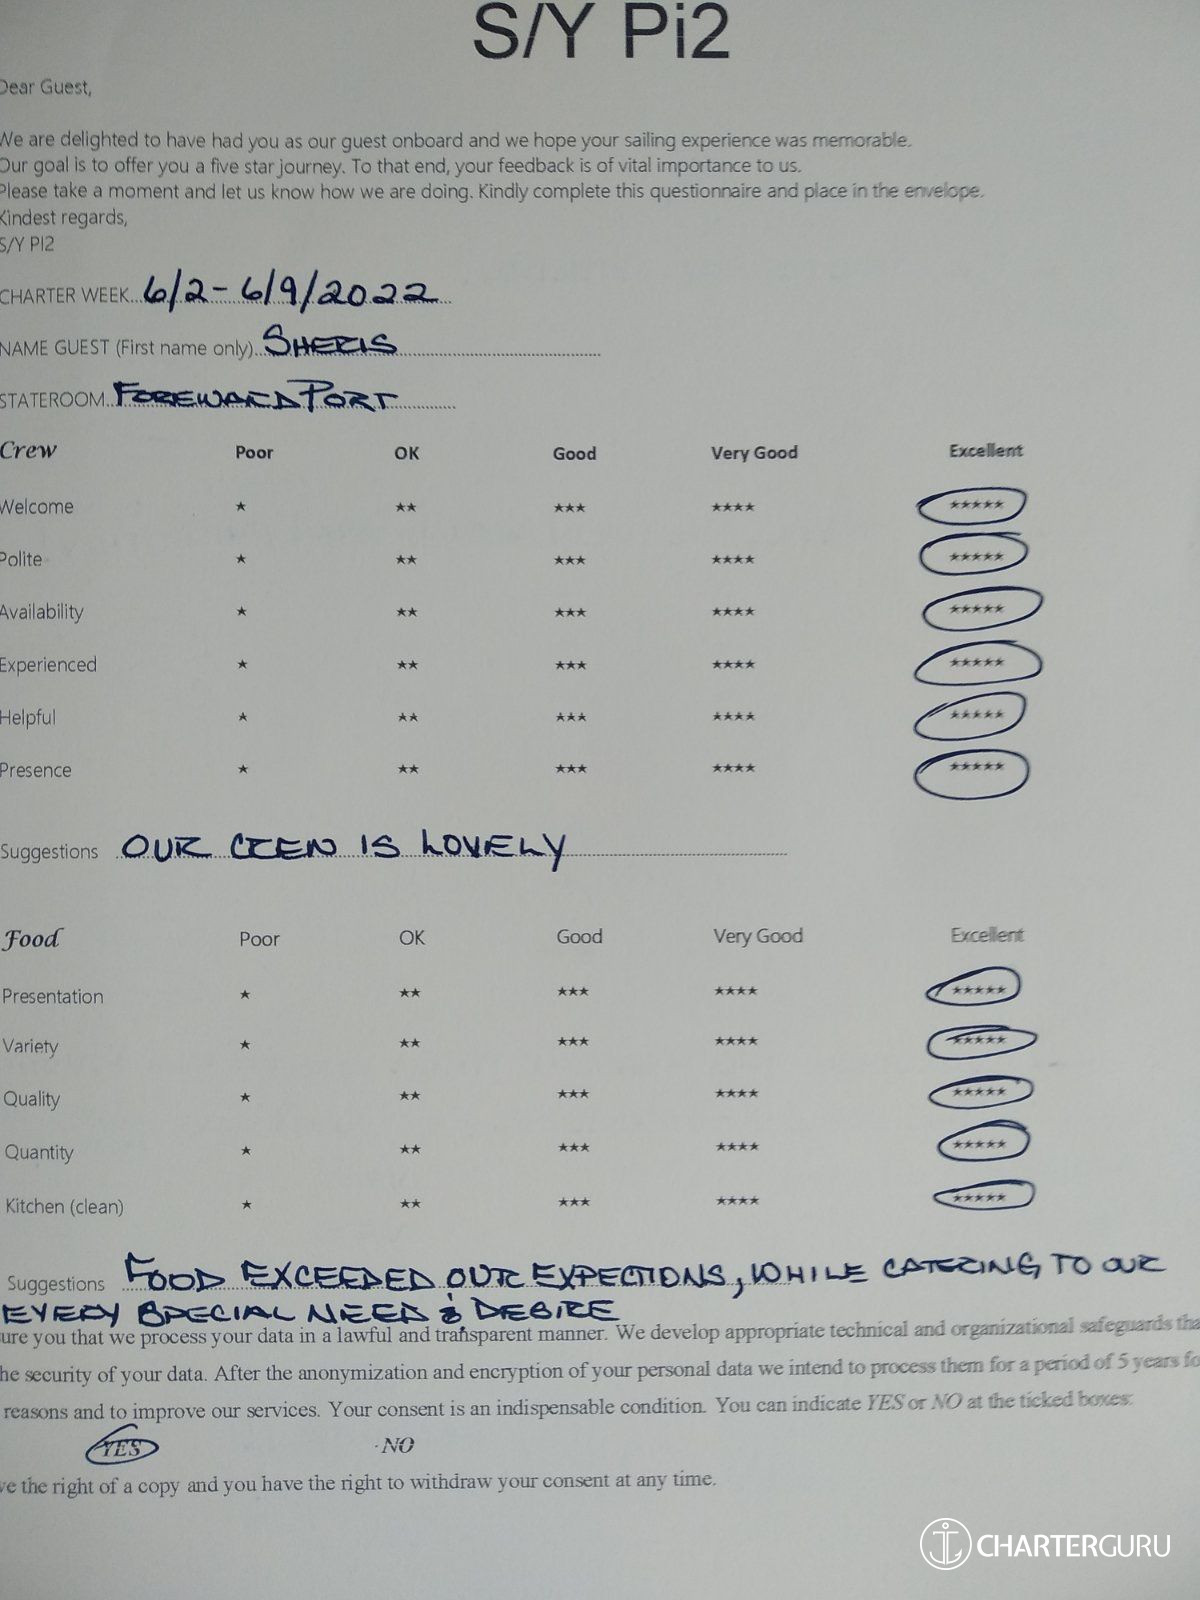 S/Y Pi2
Dear Guest,
We are delighted to have had you as our guest onboard and we hope your sailing experience was memorable.
Our goal is to offer you a five star journey. To that end, your feedback is of vital importance to us.
Please take a moment and let us know how we are doing. Kindly complete this questionnaire and place in the envelope.
Kindest regards,
S/Y PI2
CHARTER WEEK 6/2 - 6/9/2022
NAME GUEST (First name only) SHERIS
STATEROOM FOREWARD PORT
Crew Poor OK Good Very Good Excellent
Welcome ★ ★★ ★★★ ★★★★ ★★★★★
Polite ★ ★★ ★★★ ★★★★ ★★★★★
Availability ★ ★★ ★★★ ★★★★ ★★★★★
Experienced ★ ★★ ★★★ ★★★★ ★★★★★
Helpful ★ ★★ ★★★ ★★★★ ★★★★★
Presence ★ ★★ ★★★ ★★★★ ★★★★★
Suggestions OUR CREW IS LOVELY
Food Poor OK Good Very Good Excellent
Presentation ★ ★★ ★★★ ★★★★ ★★★★★
Variety ★ ★★ ★★★ ★★★★ ★★★★★
Quality ★ ★★ ★★★ ★★★★ ★★★★★
Quantity ★ ★★ ★★★ ★★★★ ★★★★★
Kitchen (clean) ★ ★★ ★★★ ★★★★ ★★★★★
Suggestions FOOD EXCEEDED OUR EXPECTIONS, WHILE CATERING TO OUR
EVERY SPECIAL NEED & DESIRE
ure you that we process your data in a lawful and transparent manner. We develop appropriate technical and organizational safeguards tha
he security of your data. After the anonymization and encryption of your personal data we intend to process them for a period of 5 years fo
reasons and to improve our services. Your consent is an indispensable condition. You can indicate YES or NO at the ticked boxes:
YES · NO
ve the right of a copy and you have the right to withdraw your consent at any time.
CHARTERGURU